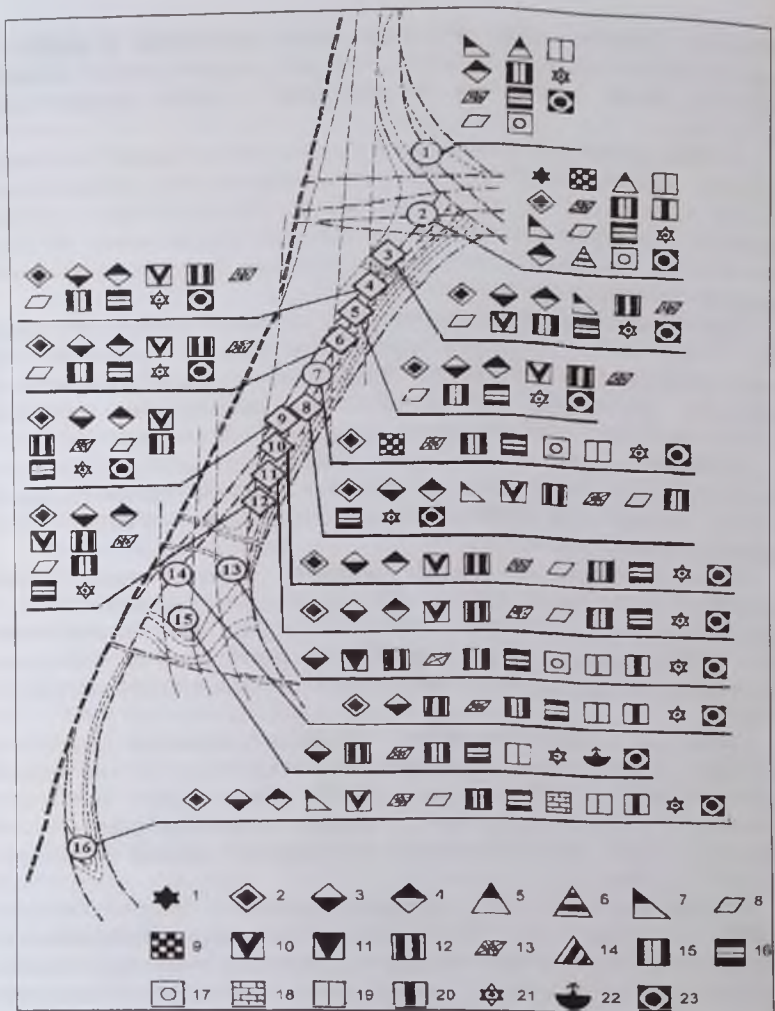 1
2
3
4
5
6
7
9 8
10
11
12
14 13
15
16
1 2 3 4 5 6 7 8
9 10 11 12 13 14 15 16
17 18 19 20 21 22 23